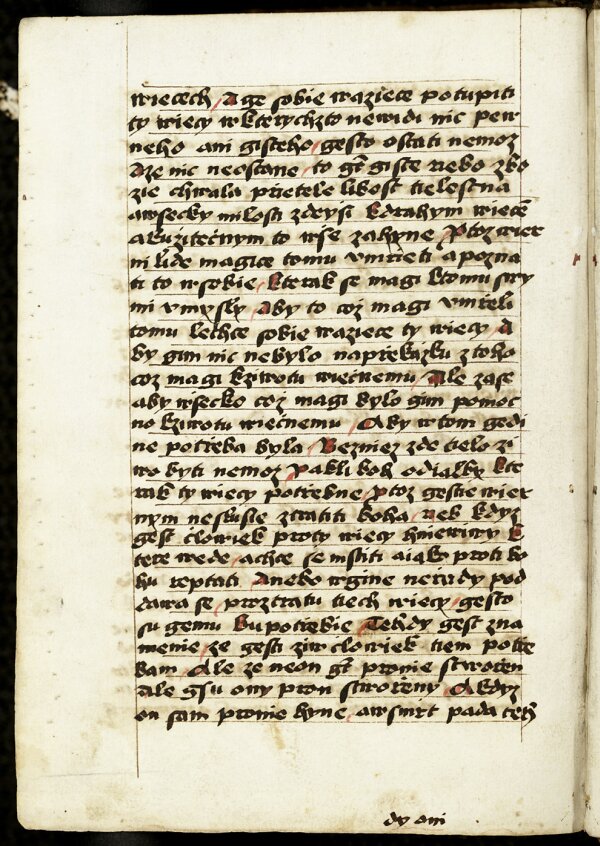 wiecech / A ge sobie waziece potupiti
ty wiecy w kterychzto newidi nic pew
neho ani gisteho / gesto ostati nemoz
A ze nic neostane / to gt giste nebo zbo
zie chwala przietele libost tielestna
a wsecky milosti zdeysi k drahym wiecē
a k uzitecnym to wse zahyne / Ptoz wier
ni lide magice tomu vmrzieti a pozna
ti to w sobie / kterak se magi k tomu swy
mi vmysly / Aby to coz magi vmieli
tomu lechce sobie waziece ty wiecy / A
by gim nic nebylo na przekazku z toho
coz magi k ziwotu wiecnemu / Ale zase
aby wsecko coz magi bylo gim pomoc
no k ziwotu wiecnemu / A by w tom gedi
ne potrzeba byla / Bezniez zde tielo zi
wo byti nemoz / Pakli boh odialby kte
rak ty wiecy potrzebne / ptoz gestie wier
nym neslusie ztratiti boha / neb kdyz
gest clowiek proty wiecy hniewiwy k
tere wede / a chce se mstiti a iako proti bo
hu reptati / Anebo w gine nerzady pod
dawa se / pro ztratu tiech wiecy / gesto
su gemu ku potrzebie / Tehdy gest zna
menie / ze gest ziw clowiek tiem potrze
bam / Ale ze neon gt pronie stworzen
Ale gsu ony pron stworzeny / A kdyz
on sam pronie hyne / a w smrt pada teh
dy oni